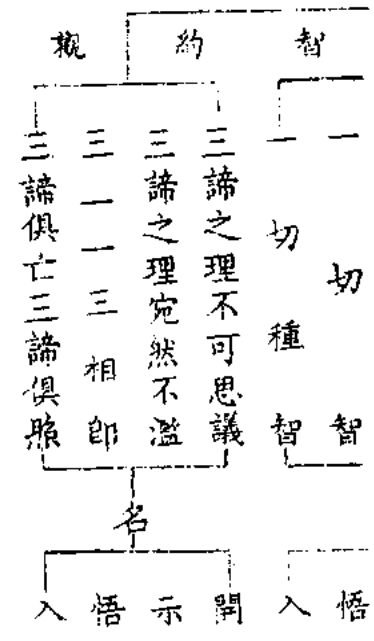 智
約
觀
一切智
一切種智
三諦之理不可思議
三諦之理宛然不濫
三一一三相即
三諦俱亡三諦俱照
名
悟
入
開
示
悟
入